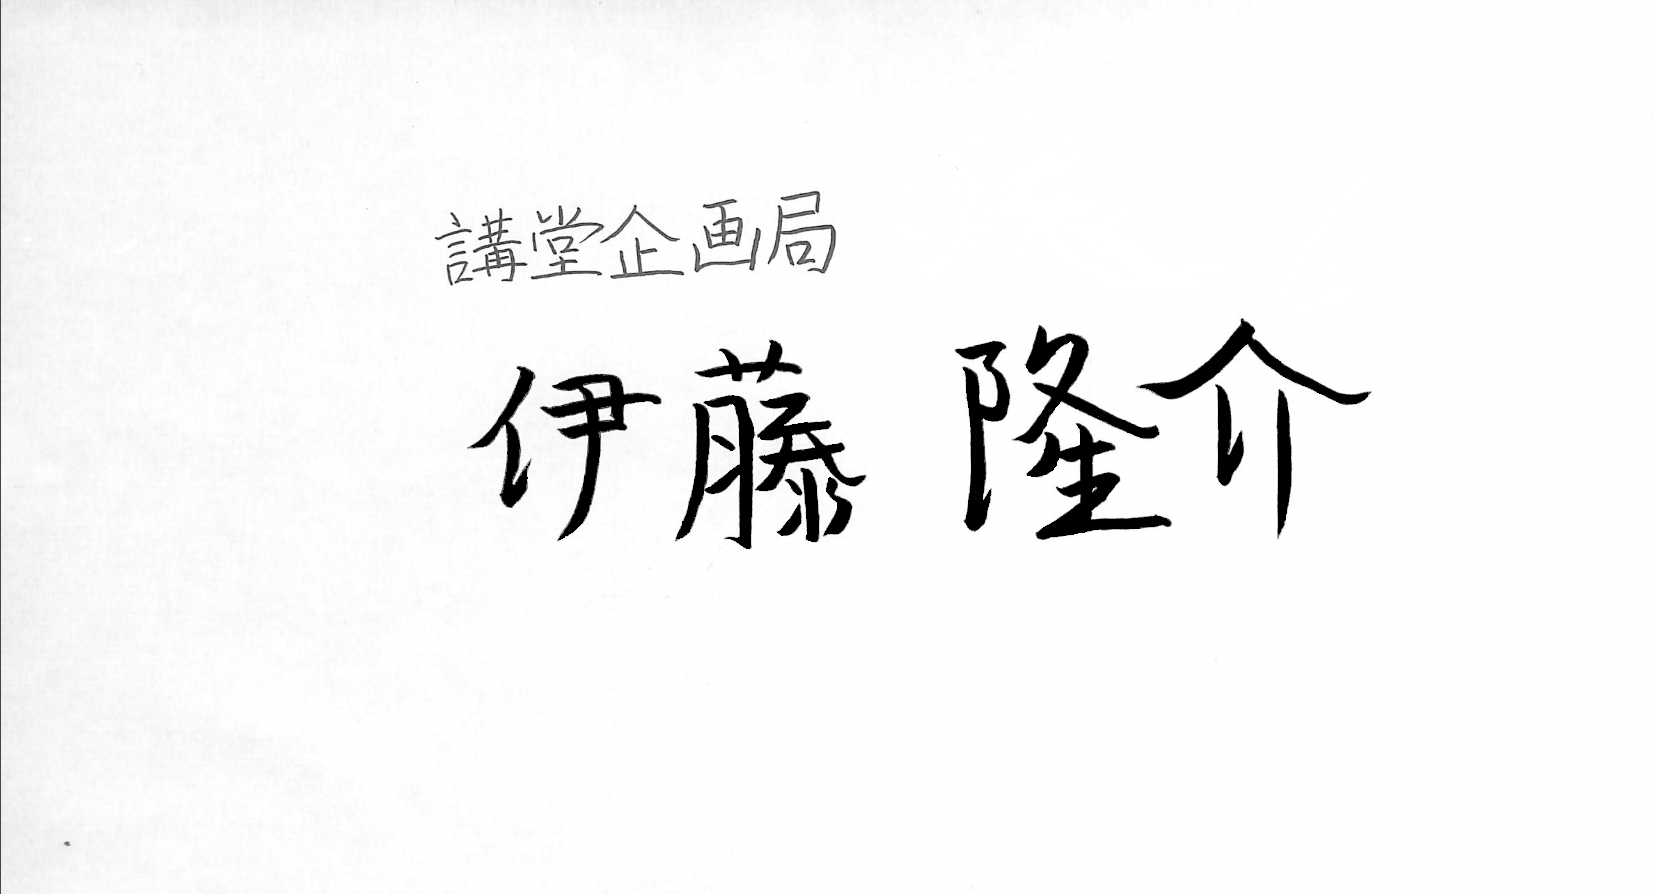 講堂企画局
伊藤 隆介